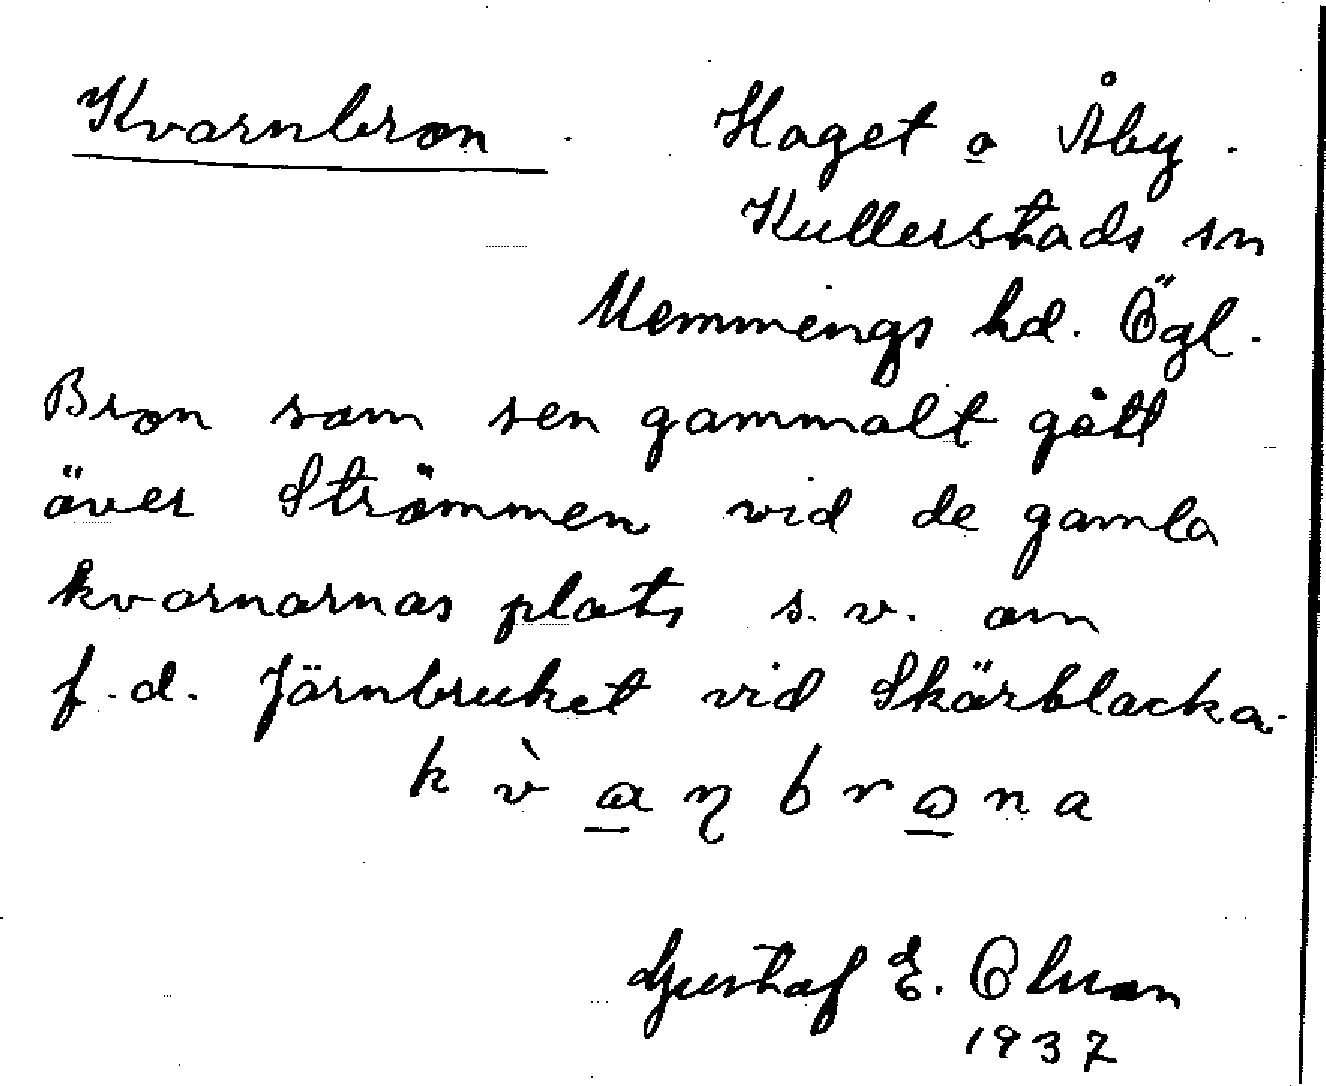 Kvarnbron. Haget o Åby.
Kullerstads sn
Memmings hd. Ögl.
Bron som sen gammalt gått
över Strömmen vid de gamla
kvarnarnas plats s.v. om
f.d. Järnbruket vid Skärblacka.
k v̀ a ŋ b r o n a
Gustaf E. Olsson
1937